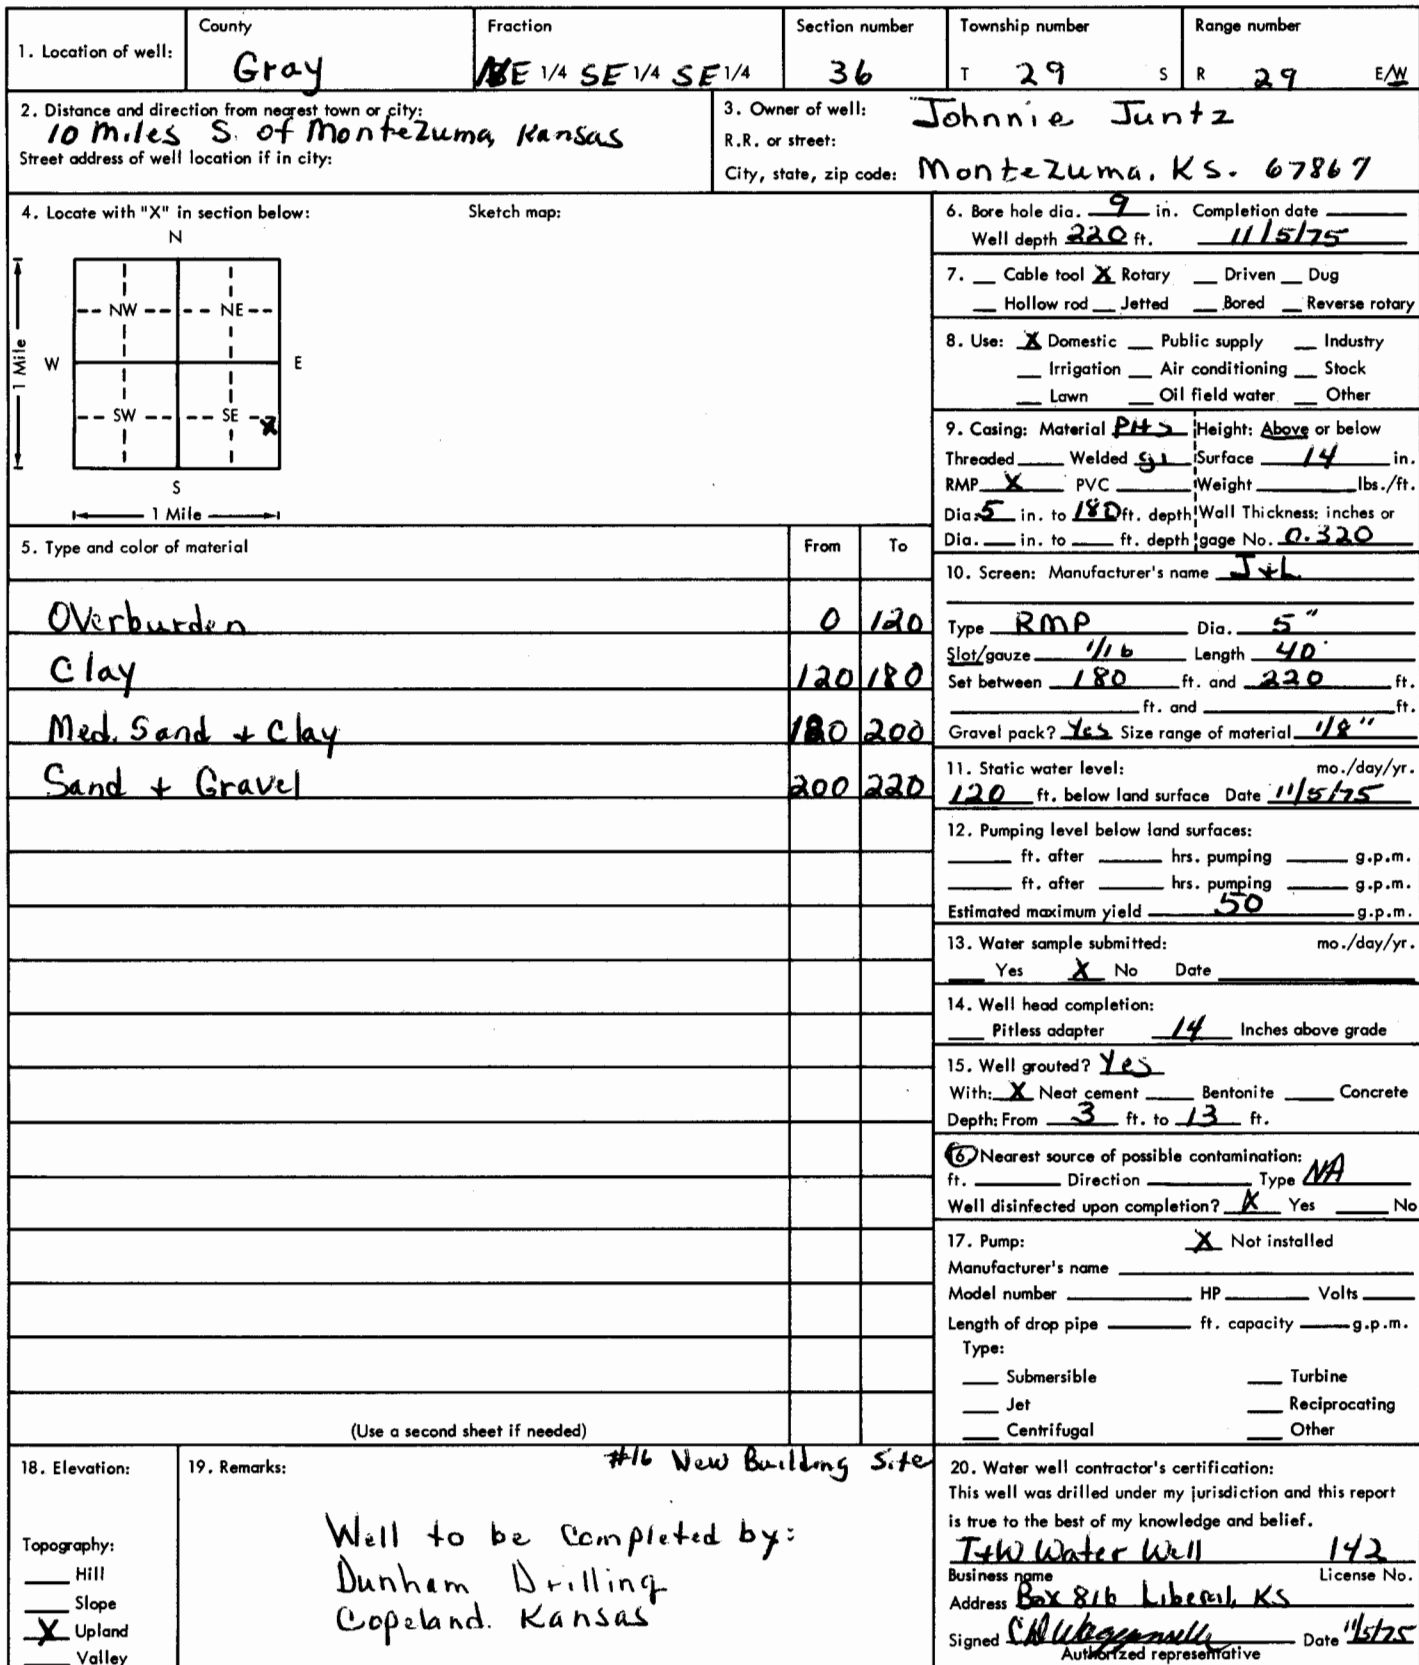 1. Location of well:
County
Gray
Fraction
NE 1/4 SE 1/4 SE 1/4
Section number
36
Township number
T 29 S
Range number
R 29 E/W
2. Distance and direction from nearest town or city:
10 miles S. of Montezuma, Kansas
Street address of well location if in city:
3. Owner of well: Johnnie Juntz
R.R. or street:
City, state, zip code: Montezuma, KS. 67867
4. Locate with "X" in section below:
Sketch map:
N
NW NE
W E
1 Mile
SW SE X
S
1 Mile
5. Type and color of material From To
Overburden 0 120
Clay 120 180
Med. Sand + Clay 180 200
Sand + Gravel 200 220
(Use a second sheet if needed)
6. Bore hole dia. 9 in. Completion date
Well depth 220 ft. 11/5/75
7. Cable tool X Rotary Driven Dug
Hollow rod Jetted Bored Reverse rotary
8. Use: X Domestic Public supply Industry
Irrigation Air conditioning Stock
Lawn Oil field water Other
9. Casing: Material Height: Above or below
Threaded Welded Surface 14 in.
RMP X PVC Weight lbs./ft.
Dia. 5 in. to 180 ft. depth Wall Thickness: inches or
Dia. in. to ft. depth gage No. 0.320
10. Screen: Manufacturer's name J+L
Type RMP Dia. 5"
Slot/gauze 1/16 Length 40'
Set between 180 ft. and 220 ft.
ft. and ft.
Gravel pack? Yes Size range of material 1/8"
11. Static water level: mo./day/yr.
120 ft. below land surface Date 11/5/75
12. Pumping level below land surfaces:
ft. after hrs. pumping g.p.m.
ft. after hrs. pumping g.p.m.
Estimated maximum yield 50 g.p.m.
13. Water sample submitted: mo./day/yr.
Yes X No Date
14. Well head completion:
Pitless adapter 14 Inches above grade
15. Well grouted? Yes
With: X Neat cement Bentonite Concrete
Depth: From 3 ft. to 13 ft.
16 Nearest source of possible contamination:
ft. Direction Type NA
Well disinfected upon completion? X Yes No
17. Pump: X Not installed
Manufacturer's name
Model number HP Volts
Length of drop pipe ft. capacity g.p.m.
Type:
Submersible Turbine
Jet Reciprocating
Centrifugal Other
18. Elevation:
Topography:
Hill
Slope
X Upland
Valley
19. Remarks: #16 New Building Site
Well to be Completed by:
Dunham Drilling
Copeland. Kansas
20. Water well contractor's certification:
This well was drilled under my jurisdiction and this report
is true to the best of my knowledge and belief.
T+W Water Well 142
Business name License No.
Address Box 816 Liberal, KS
Signed Date 11/5/75
Authorized representative